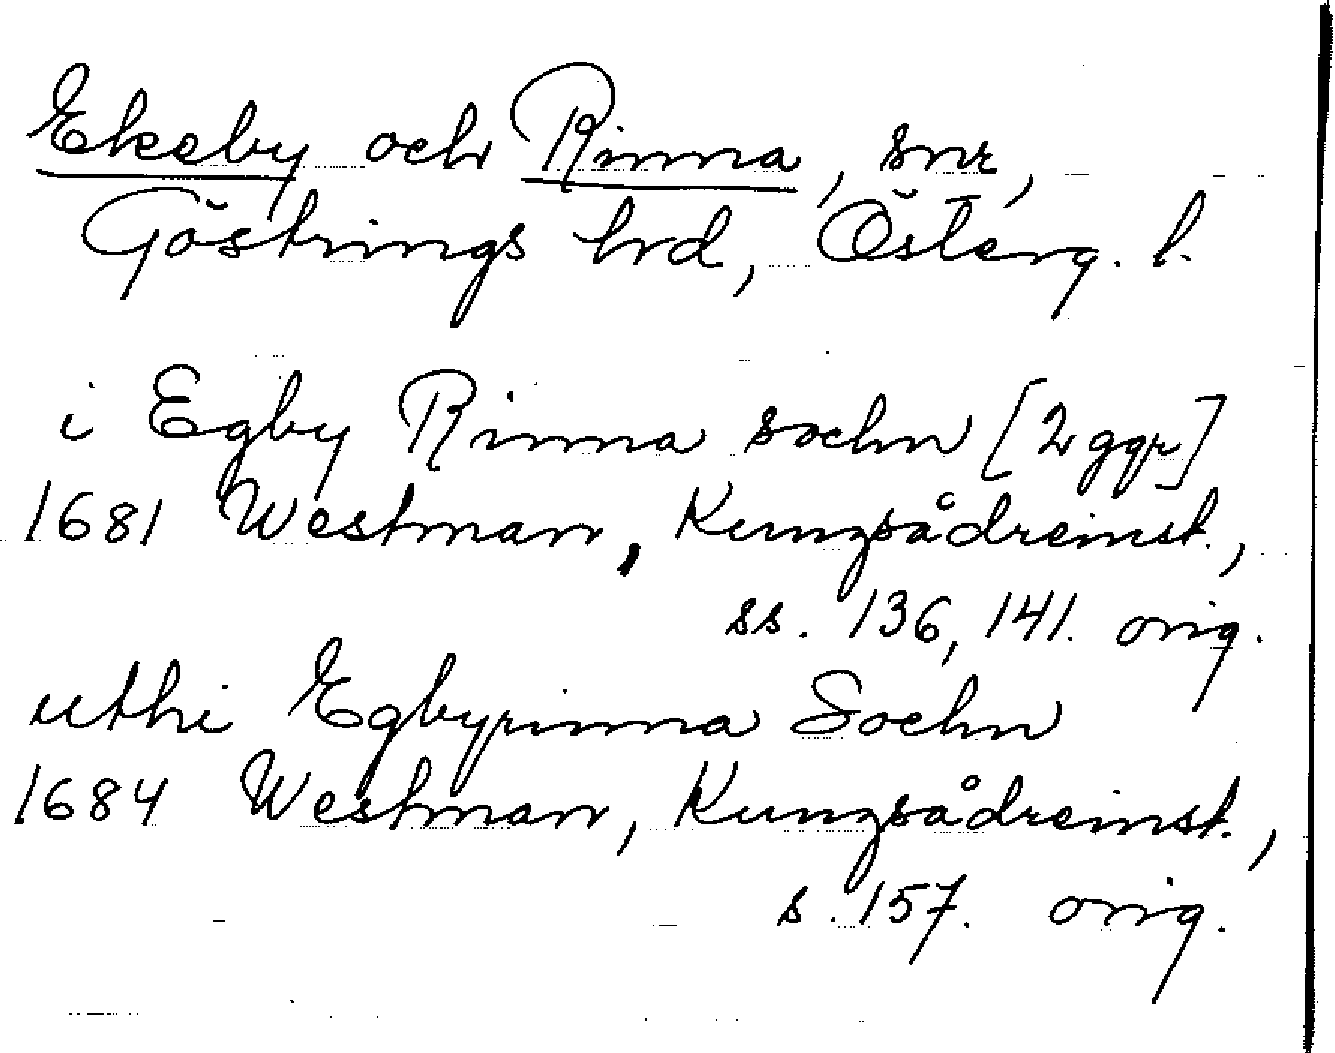 Ekeby och Rinna, snr,
Göstrings hrd, Österg. l.
i Egby Rinna sochn [2 ggr]
1681 Westman, Kungsådreinst.,
ss. 136, 141. orig.
uthi Egbyrinna Sochn
1684 Westman, Kungsådreinst.,
s. 157. orig.